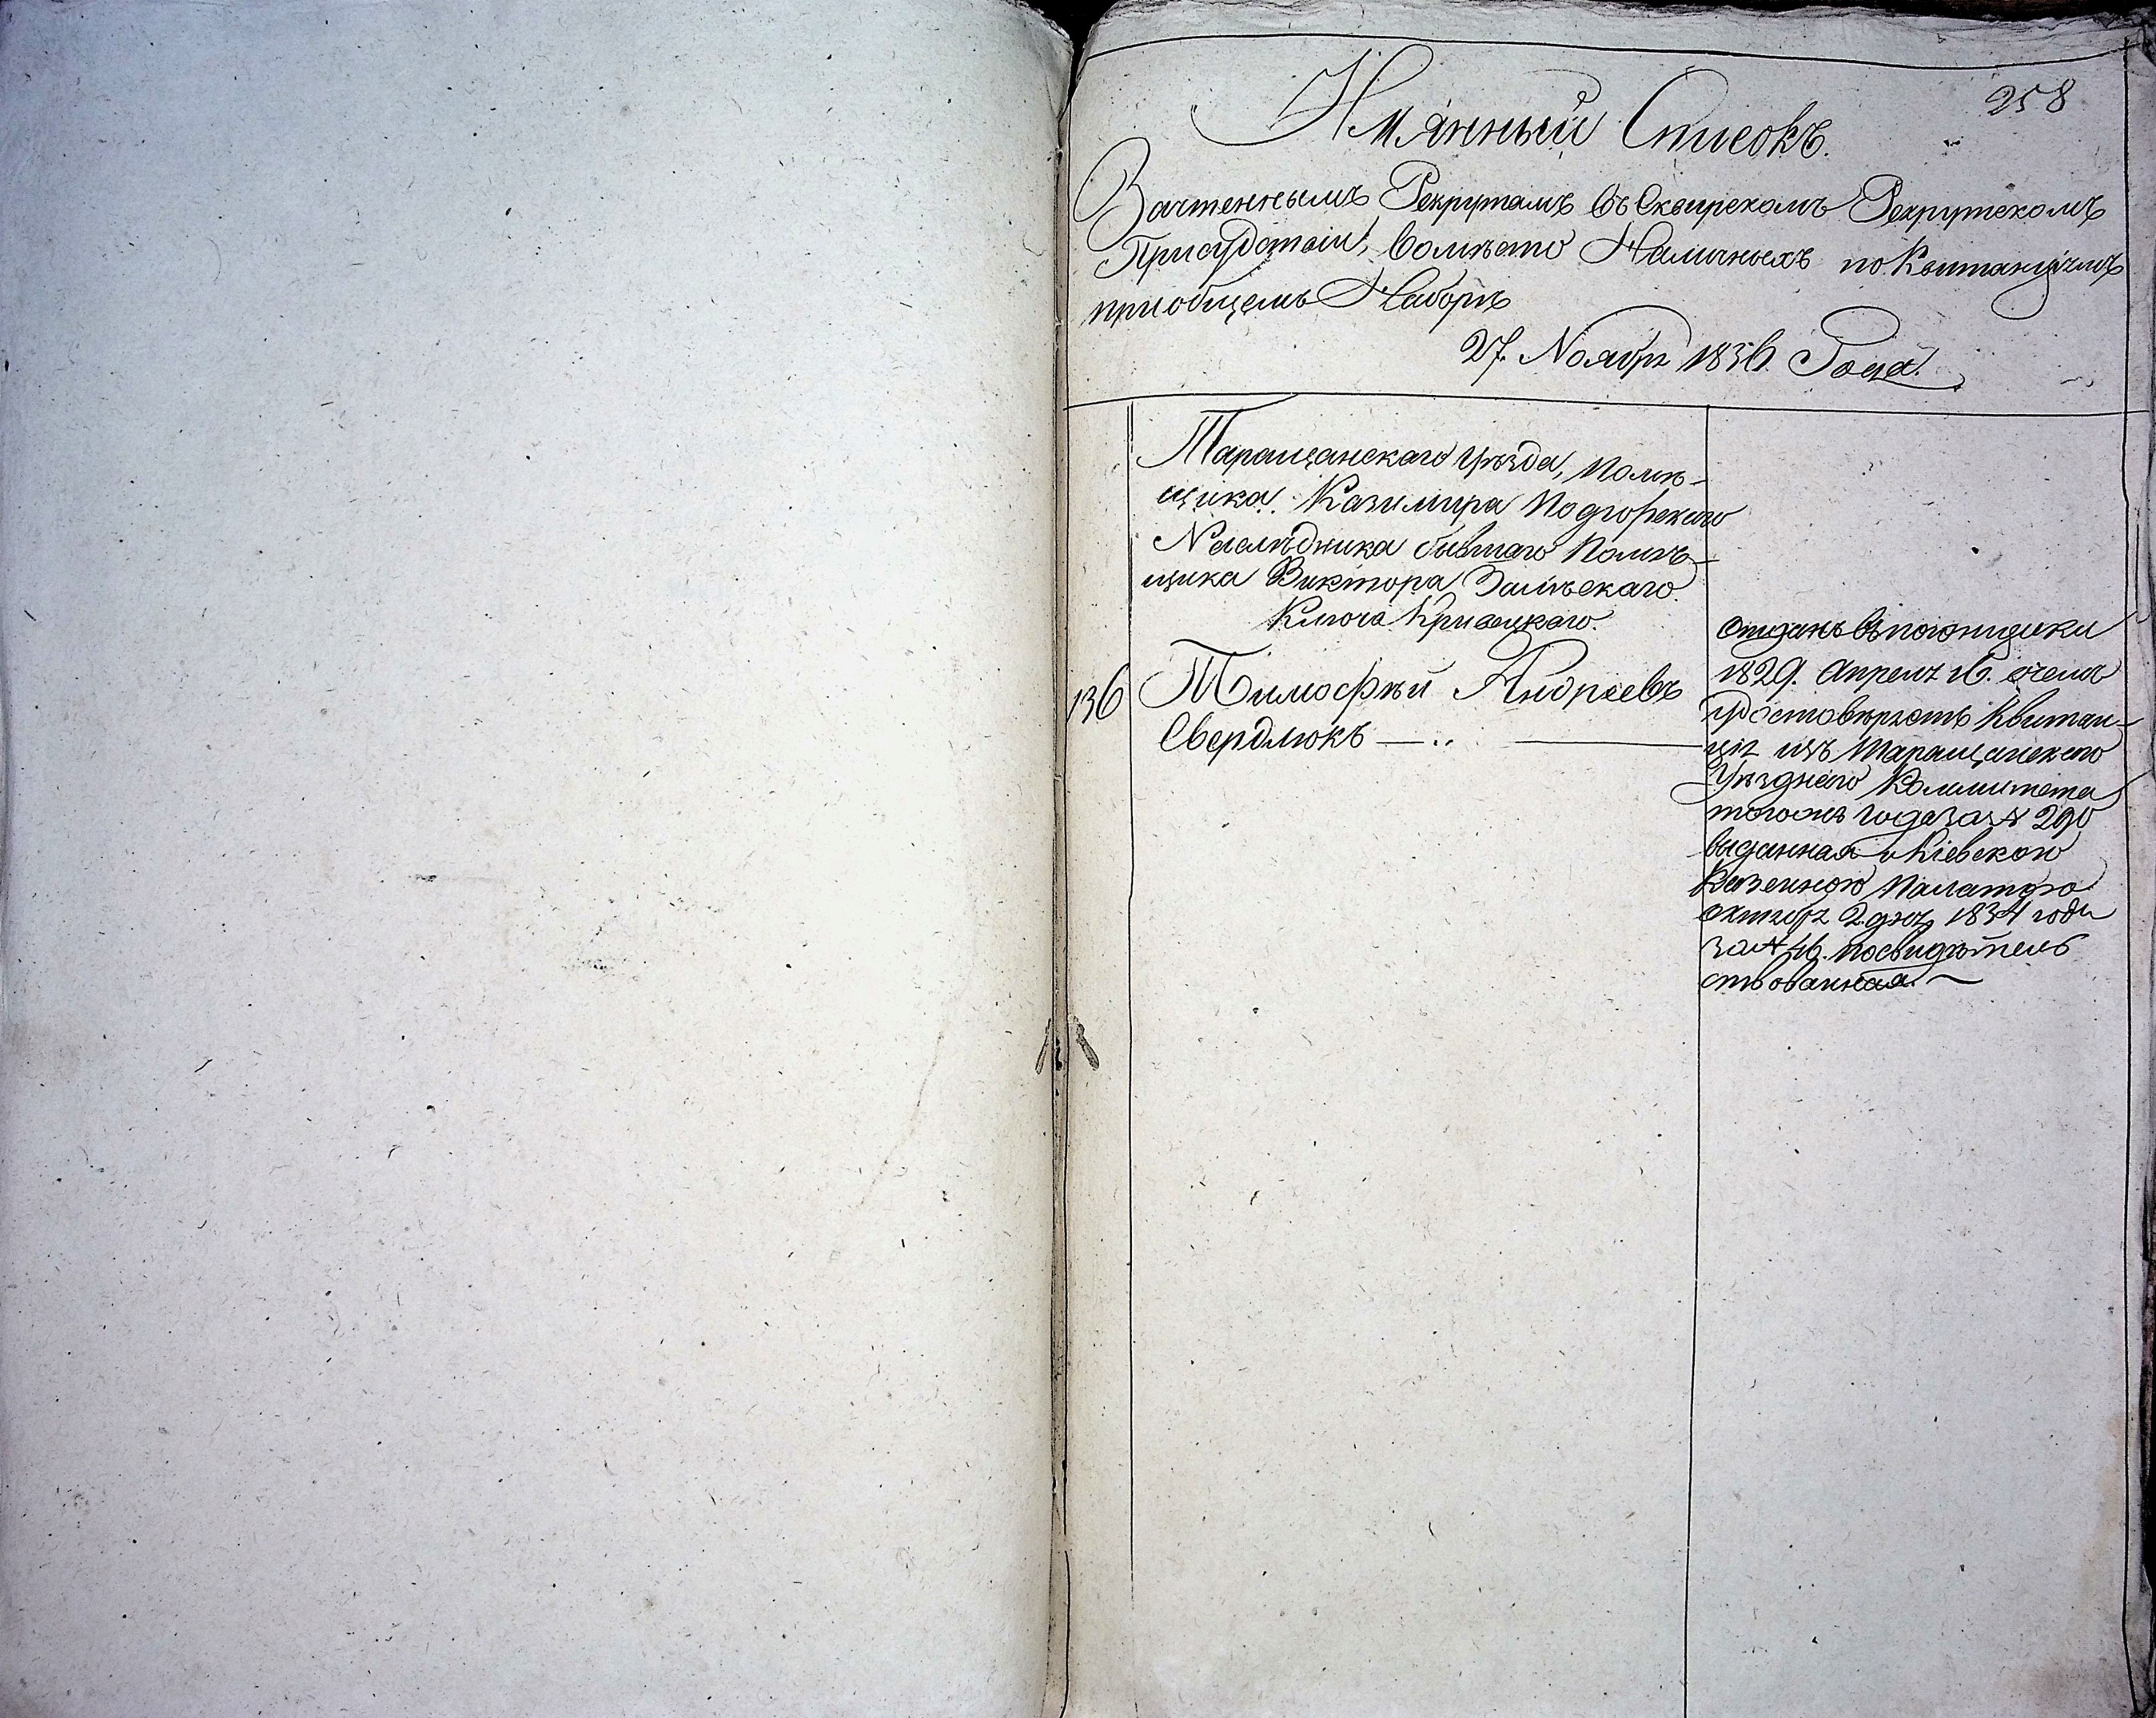 258
Имянный Списокъ.
Зачтеннымъ Рекрутамъ въ Сквирскомъ Рекрутскомъ
Присудствіи, вомѣсто Наличныхъ по Квитанціямъ
приобщемъ Наборѣ
27. Ноября 1836 Года.
Таращанскаго уѣзда, Помѣ-
щика Казимира Подгорскаго
Наслѣдника бывшаго Помѣ-
щика Виктора Залѣскаго.
Ключа Кривецкаго.
136 Тимофѣй Андреевъ
Свердлюкъ
Отданъ въ погонщики
1829. Апреля 16. очемъ
удостовѣряетъ Квитан-
ція изъ Таращанскаго
Уѣзднаго Коммитета
тогожъ года за № 290
выданная и Кіевскою
Казенною Палатою
октября 2 дня 1834 года
за № 46. посвидѣтель
ствованная.